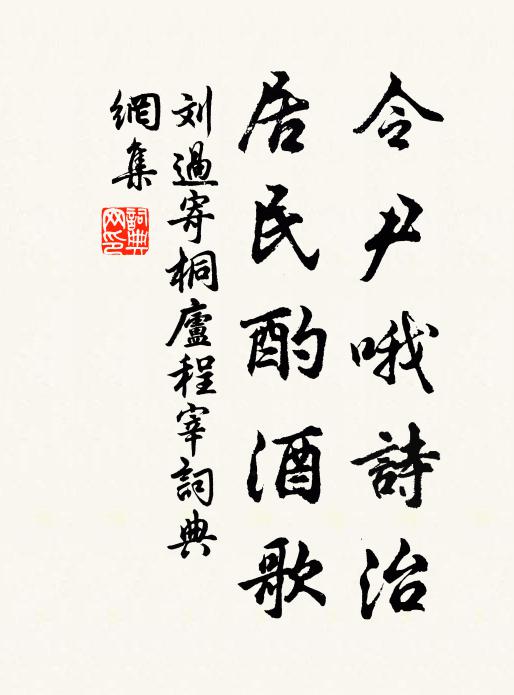 令尹哦詩治
居民酌酒歌
刘過寄桐廬程宰詞典
網集
詞典
网印